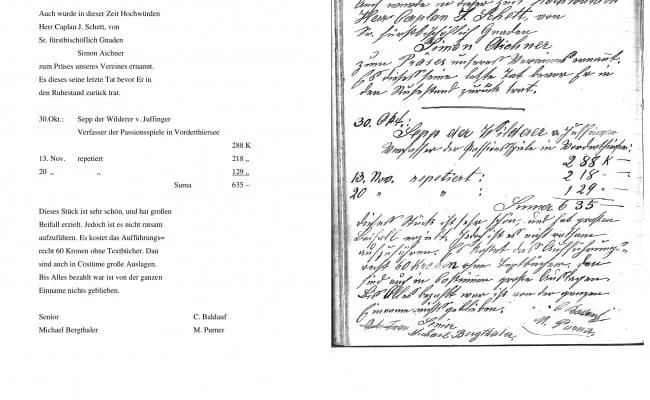 Auch wurde in dieser Zeit Hochwürden
Herr Caplan J. Schett, von
Sr. fürstbischöflich Gnaden
Simon Aichner
zum Präses unseres Vereines ernannt.
Es dieses seine letzte Tat bevor Er in
den Ruhestand zurück trat.
30.Okt.: Sepp der Wilderer v. Juffinger
Verfasser der Passionsspiele in Vorderthiersee
288 K
13. Nov. repetiert 218 „
20 „ „ 129 „
Suma 635 –
Dieses Stück ist sehr schön, und hat großen
Beifall erzielt. Jedoch ist es nicht ratsam
aufzuführen. Es kostet das Aufführung=
recht 60 Kronen ohne Textbücher. Dan
sind auch in Costüme große Auslagen.
Bis Alles bezahlt war ist von der ganzen
Einname nichts geblieben.
Senior C. Baldauf
Michael Bergthaler M. Purner
Herr Caplan J. Schett, von
Sr. fürstbischöflich Gnaden
Simon Aichner
zum Präses unseres Vereines ernannt.
Es dieses seine letzte Tat bevor Er in
den Ruhestand zurück trat.
30. Okt.:
Sepp der Wilderer v Juffinger
Verfasser der Passionsspiele in Vorderthiersee
288 K —
13. Nov. repetiert: 218 –
20 „ „ 129 –
Suma 635 —
dieses Stück ist sehr schön, und hat großen
Beifall erzielt. Jedoch ist es nicht ratsam
aufzuführen. Es kostet das Aufführung=
recht 60 Kronen ohne Textbücher. Dan
sind auch in Costüme große Auslagen.
Bis Alles bezahlt war ist von der ganzen
Einname nichts geblieben.
Senior
Michael Bergthaler M. Purner